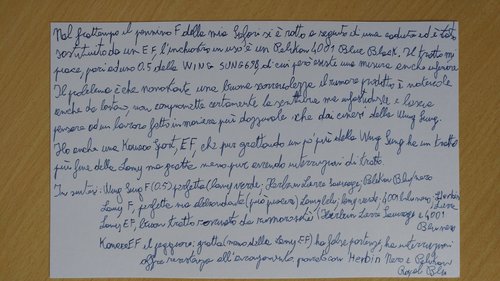 Nel frattempo il pennino F della mia Safari si è rotto a seguito di una caduta ed è stato
sostituito da un EF, l'inchiostro in uso è un Pelikan 4001 Blue Black. Il tratto mi
piace, pari ad uno 0.5 della WING SUNG 698, di cui però esiste una misura anche inferiore.
Il problema è che nonostante una buona scorrevolezza il rumore prodotto è notevole
anche da lontano, non compromette certamente la scrittura ma infastidisce e lascia
pensare ad un lavoro fatto in maniera più dozzinale che dai cinesi della Wing Sung.
Ho anche una Kaweco Sport, EF, che pur grattando un po' più della Wing Sung ha un tratto
più fine della Lamy ma gratta meno pur avendo interruzioni di tratto.
In sintesi: Wing Sung F (0.5) perfetta (Lamy verde, Herbin Lierre Sauvage, Pelikan Blu/nero
Lamy F, perfetta ma abbondante (più pastosa) Lamy blu, Lamy verde, 4001 Blu nero, Herbin Lierre
Lamy EF, buon tratto rovinato da rumorosità (Herbin Lierre Sauvage e 4001
Blu nero
Kaweco EF il peggiore: gratta (meno della Lamy EF) ha false partenze, ha interruzioni
offre resistenza all'avanzamento, provata con Herbin Nero e Pelikan
Royal Blu